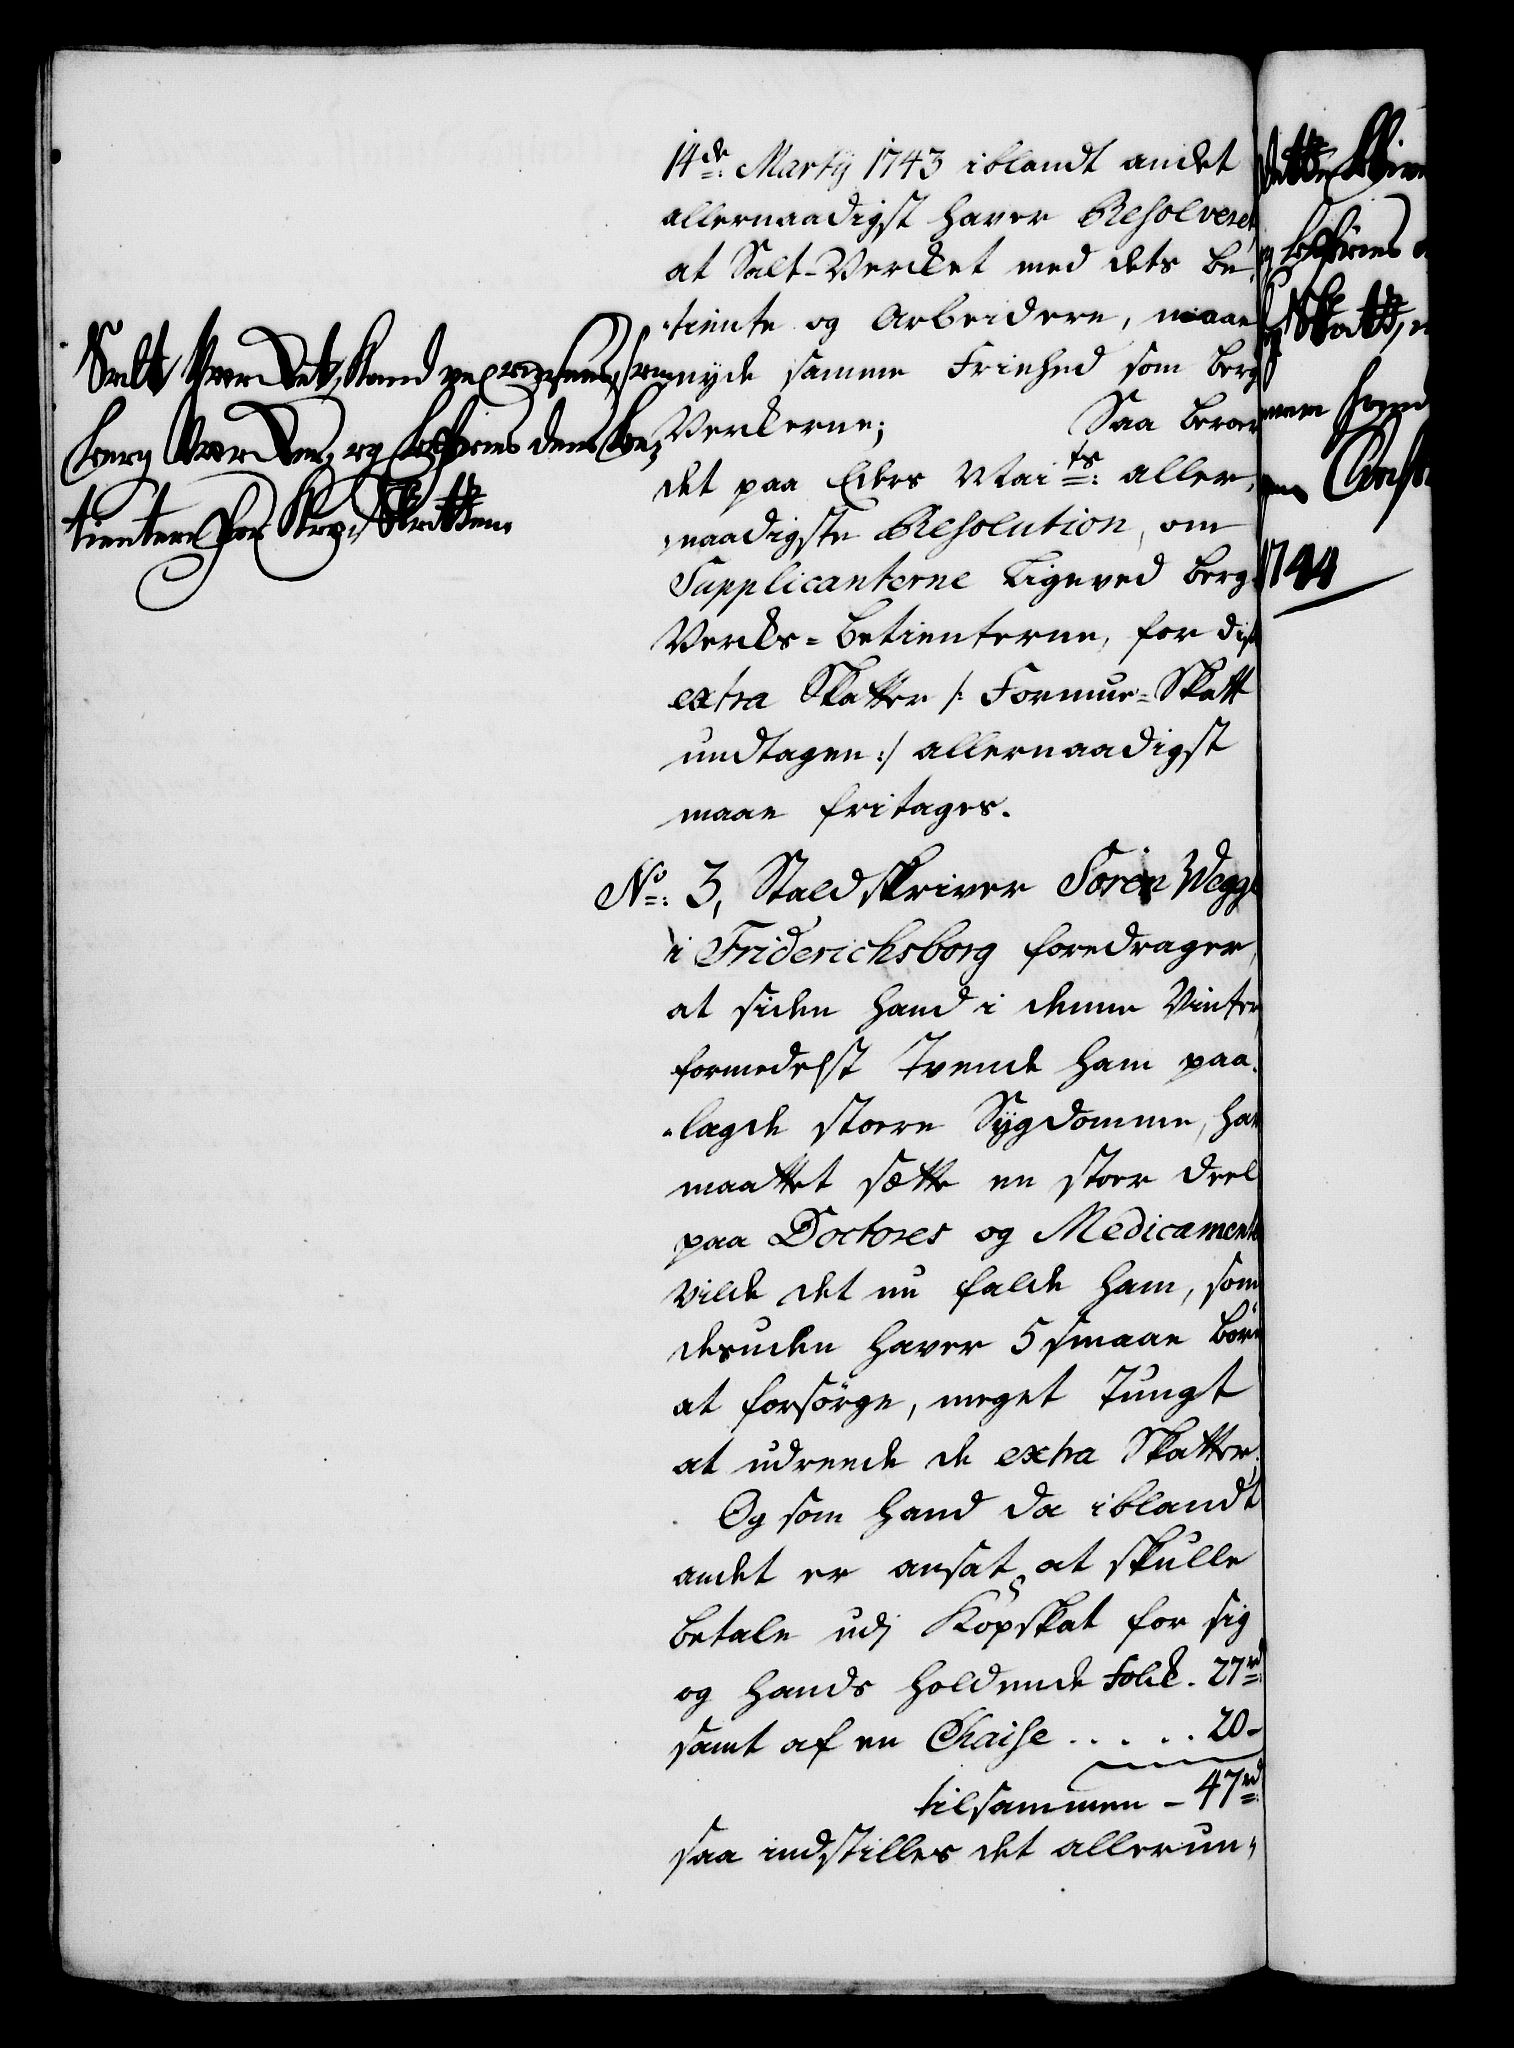 14de: Martij 1743 iblandt andet
allernaadigst haver Resolveret
at Salt-Verket med dets be,
tiente og Arbeidere, maae
nyde samme Friehed som berg
Verkerne; Saa beroer
det paa Eders Maits: aller,
naadigste Resolution, om
Supplicanterne Ligeved berg-
Verks-betienterne, for disse
extra Skatter /: Formue-Skatt
undtagen :/ allernaadigst
maae fritages.
Salt Verket, Kand
berg Verker, og befries dens be,
tientere for Kop, Skatten
No: 3, Staldskriver Sören Wegge
i Friderichsborg foredrager,
at siden hand i denne Vinter
formedelst Tvende ham paa,
lagde stoere Sygdomme, har
maattet sætte en stoer deel
paa Doctores og Medicamenter
vilde det nu falde ham, som
desuden haver 5 smaae börn
at forsörge, meget Tungt
at udreede de extra Skatter.
Og som hand da iblandt
andet er ansat, at skulle
betale udj Kopskat for sig
og hands holdende Folk. 27rd:
samt af en Chaise . . . . . 20-
tilsammen - 47rd:
saa indstilles det allerun,
dette
befries
Skatt,
1744